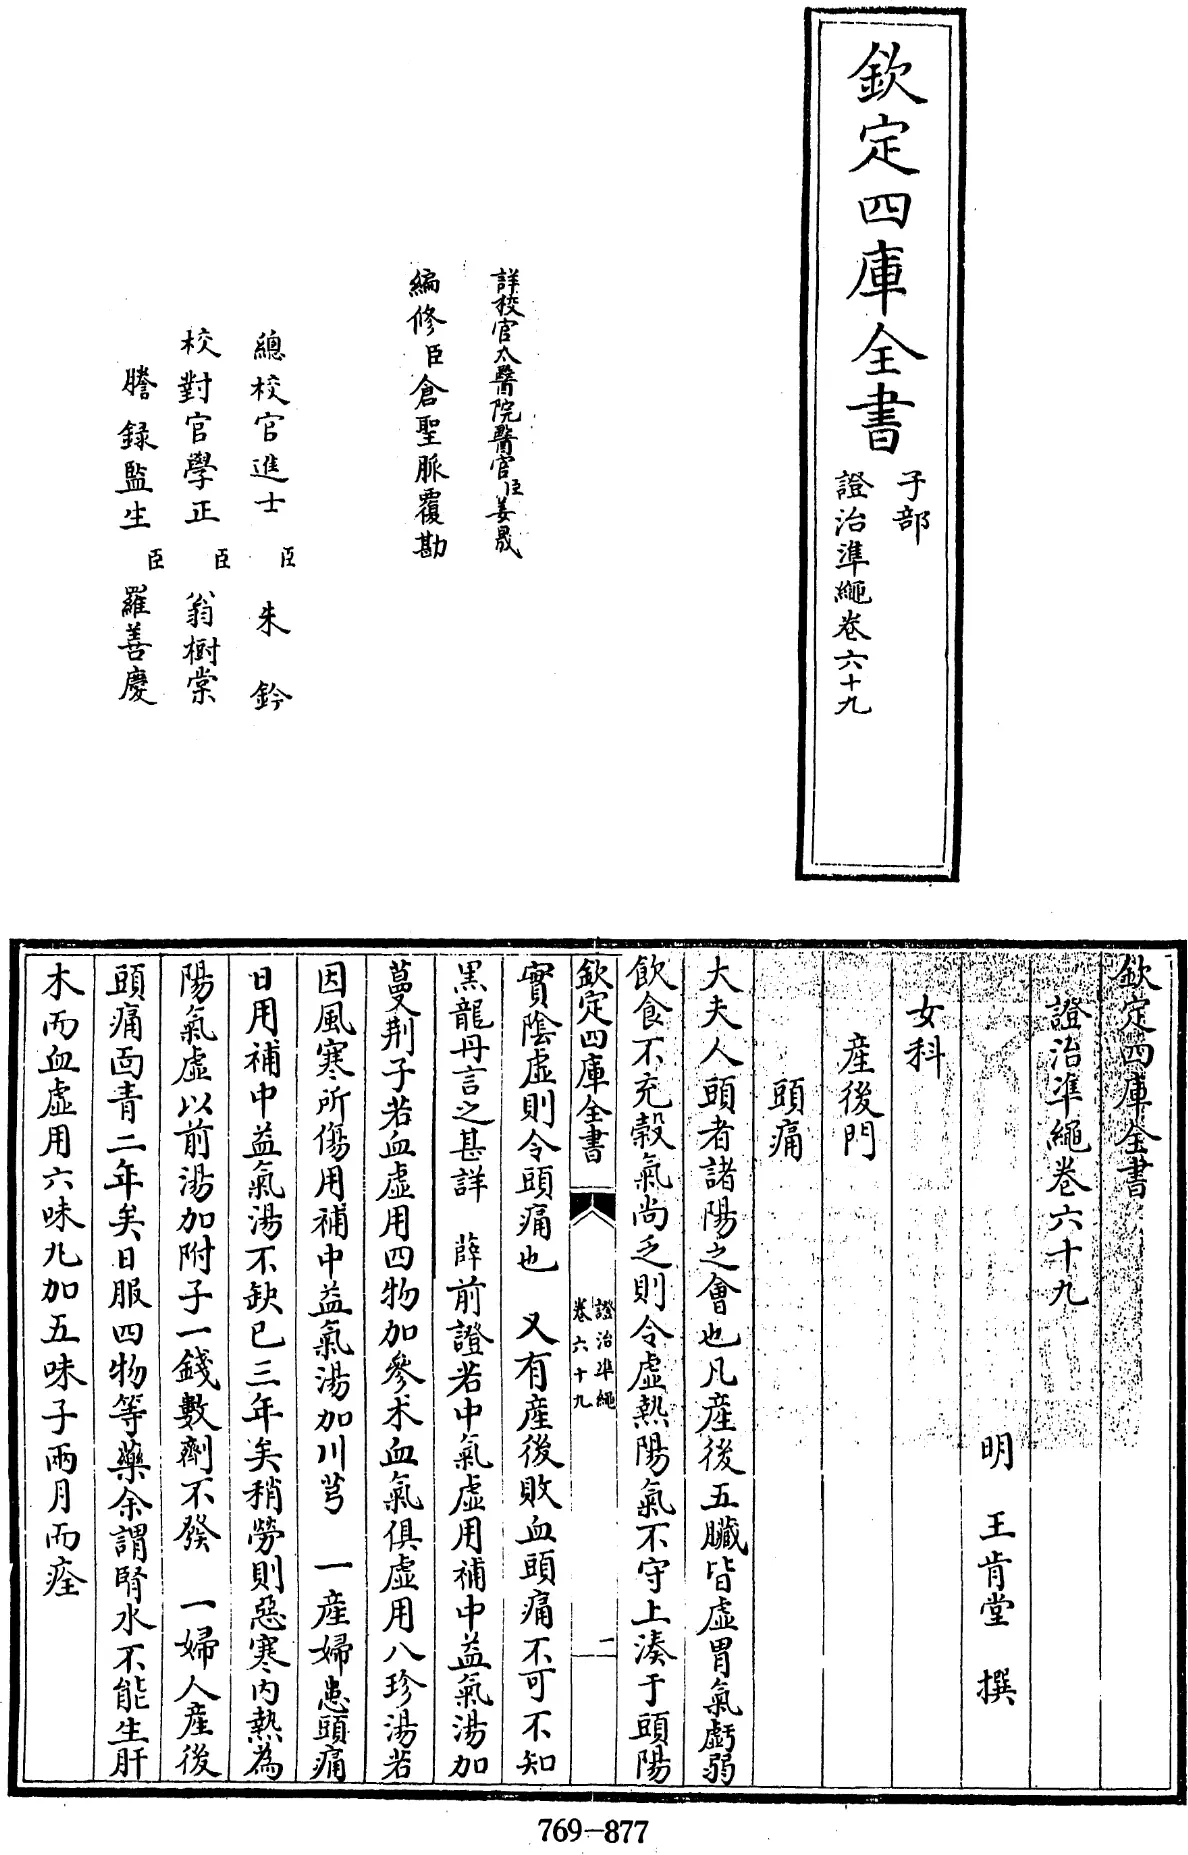 欽定四庫全書
子部
證治準繩卷六十九
詳校官太醫院醫官臣姜晟
編修臣倉聖脈覆勘
總校官進士臣朱鈐
校對官學正臣翁樹棠
謄錄監生臣羅善慶
欽定四庫全書
證治準繩卷六十九
明 王肯堂 撰
女科
產後門
頭痛
大夫人頭者諸陽之會也凡產後五臟皆虛胃氣虧弱
飲食不充穀氣尚乏則令虛熱陽氣不守上湊于頭陽
欽定四庫全書
證治準繩
卷六十九
二
實陰虛則令頭痛也 又有產後敗血頭痛不可不知
黑龍丹言之甚詳 薛前證若中氣虛用補中益氣湯加
蔓荆子若血虛用四物加參朮血氣俱虛用八珍湯若
因風寒所傷用補中益氣湯加川芎 一產婦患頭痛
日用補中益氣湯不缺已三年矣稍勞則惡寒内熱為
陽氣虛以前湯加附子一錢數劑不發 一婦人產後
頭痛面青二年矣日服四物等藥余謂腎水不能生肝
木而血虛用六味丸加五味子兩月而痊
769-877